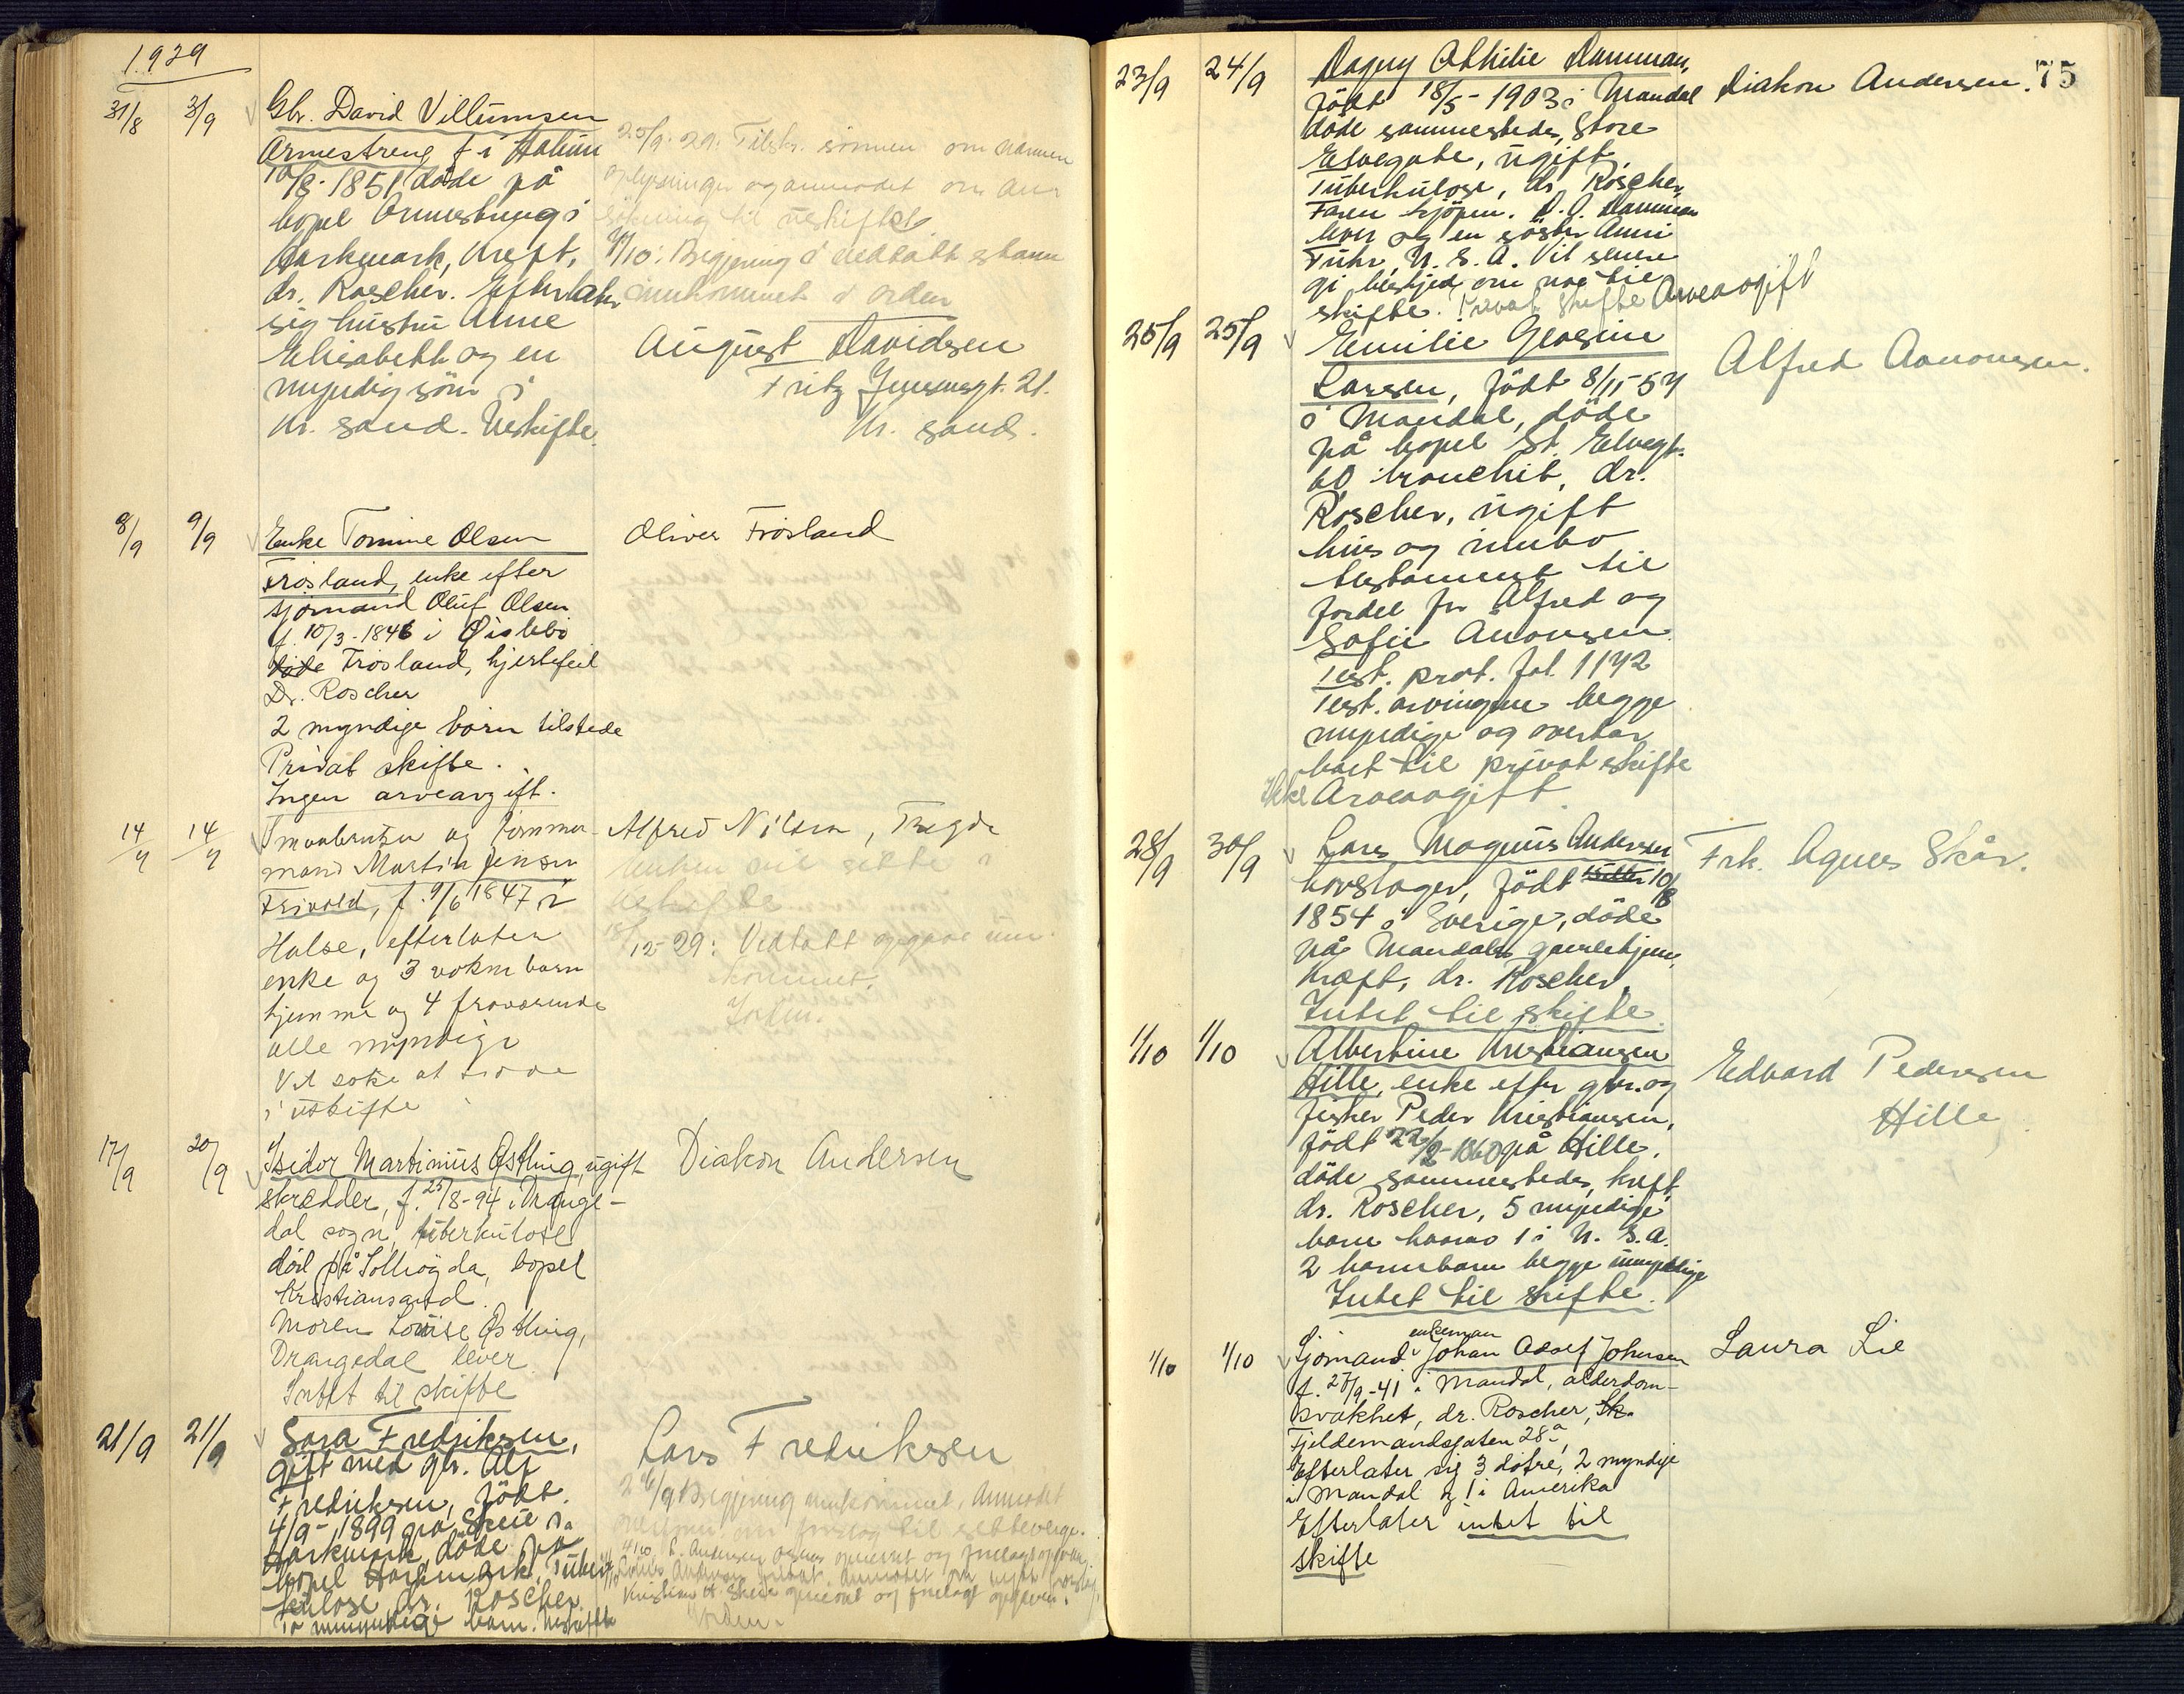 1929
31/8 3/9 Gbr. David Villumsen
Armestreng f i Halum
10/8-1851 døde på
bopel Armestreng i
Harkmark, kreft,
dr. Roscher. Efterlater
sig hustru Anne
Elisabeth og en
myndig sønn i
Kr. sand. Uskifte.
25/9-29: Tilskr. sønnen om navnen
oplysninger og anmodet om an
søkning til uskifte
/10: Begjering i vedtatt stann
innkommet i orden
August Davidsen
Fritz Jensensgt. 21.
Kr. sand.
8/9 9/9 Enke Tomine Olsen
Frøsland, enke efter
sjømand Oluf Olsen
f. 10/3-1846 i Øislebø
døde Frøsland, hjertefeil
Dr. Roscher
2 myndige børn tilstede
Privat skifte.
Ingen arveavgift.
Oliver Frøsland
14/9 14/9 Smaabruker og tømmer-
mand Martin Jensen
Frivold, f. 9/6 1847 i
Halse, efterlater
enke og 3 voksne barn
hjemme og 4 fraværende
alle myndige
Vil søke at sidde
i uskifte
Alfred Nilsen, Tregde
Enken vil sitte i
Uskifte
12-29: Vedtatt opgave inn-
kommet.
17/9 20/9 Isidor Martinius Østling, ugift
skrædder, f. 25/8-94 i Drange-
dal sogn, tuberkulose
død på Solhøgda, bopel
Kristiansand.
Moren Louise Østling,
Drangedal lever
Intet til skifte
Diakon Andersen
21/9 21/9 Sara Fredriksen,
gift med gbr. Alf
Fredriksen, født
4/9-1899 på Skeie i
Harkmark, døde på
bopel Harkmark, Tuber
kulose dr. Roscher.
To umyndige barn. Uskifte
Lars Fredriksen
26/9 Begjering innkommet. Anmodet
om forslag til setteverge.
4/10 Andersen opnevnt og forelagt opgaven
Kristian A. Skeie opnevnt og forelagt opgaven.
75
23/9 24/9 Dagny Othilie Damman,
født 18/5-1903 i Mandal
døde sammesteds, Store
Elvegate, ugift,
Tuberkulose, dr. Roscher,
Faren kjøpm. D. J. Damman
lever og en søster Anni
Fuhr, U. S. A. Vil senere
gi beskjed om noe til
skifte. Privat Skifte Arveavgift
Diakon Andersen.
25/9 25/9 Emilie Georgine
Larsen, født 8/11-54
i Mandal, døde
på bopel St. Elvegt.
60 bronchit, dr.
Roscher, ugift
hus og innbo
testament til
fordel for Alfred og
Sofie Aanonsen.
Test. prot. fol. 1142
Test. arvingene begge
myndige og overtar
boet til privat skifte
Ikke Arveavgift.
Alfred Aanonsen.
28/9 30/9 Lars Magnus Andersen
hovslager, født 10/8
1854 i Sverige, døde
på Mandals gamlehjem,
kræft, dr. Roscher,
Intet til skifte.
Frk. Agnes Skår.
1/10 1/10 Albertine Kristiansen
Hille, enke efter gbr. og
fisker Peder Kristiansen,
født 22/2-1860 på Hille,
døde sammesteds, kreft,
dr. Roscher, 5 myndige
barn hvorav 1 i U. S. A.
2 barnebarn begge umyndige
Intet til skifte.
Edvard Pedersen
Hille
1/10 1/10 enkeman
Sjømand Johan Adolf Johnsen
f. 27/9-41 i Mandal, alderdom-
svakhet, dr. Roscher, Sk.
Fjeldemandsgaten 28a,
Efterlater sig 3 døtre, 2 myndige
i Mandal og 1 i Amerika
Efterlater intet til
skifte
Laura Lie